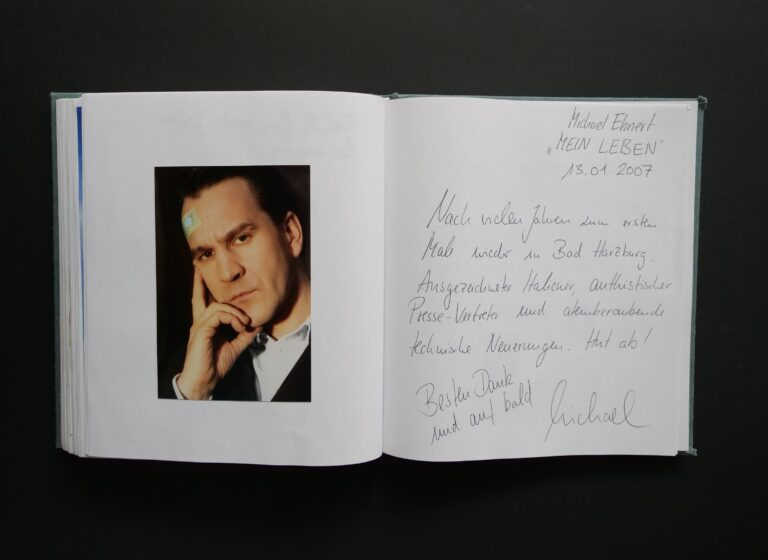 Michael Ehnert
„MEIN LEBEN"
13.01.2007
Nach vielen Jahren zum ersten
Mal wieder in Bad Harzburg.
Ausgezeichneter Italiener, authistischer
Presse-Vertreter und atemberaubende
technische Neuerungen. Hut ab!
Besten Dank
und auf bald
Michael